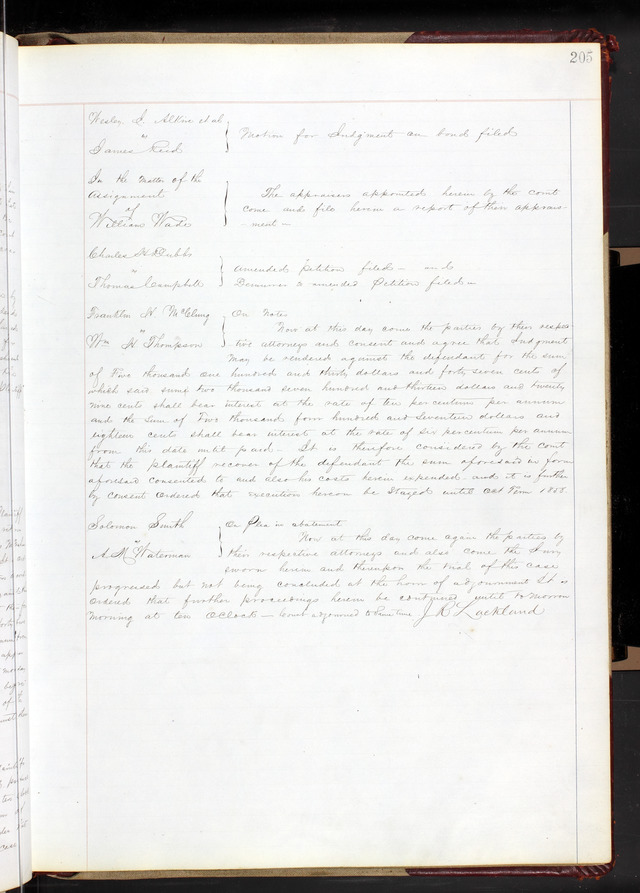 205
Wesley I. Alkire et al
vs
James Reid
Motion for Judgment on bond filed
In the Matter of the
Assignment
of
William Wade
The appraisers appointed herein by the court
come and file herein a report of their appraise-
-ment —
Charles H Dubbs
vs
Thomas Campbell
Amended Petition filed — and
Demurrer to amended Petition filed —
Franklin N. McClung
vs
Wm H Thompson
On Notes
Now at this day come the parties by their respec
tive attorneys and consent and agree that Judgment
may be rendered against the defendant for the sum
of Five thousand one hundred and thirty dollars and forty seven cents of
which said sums two thousand seven hundred and thirteen dollars and twenty
nine cents shall bear interest at the rate of ten per centum per annum
and the Sum of Two thousand four hundred and Seventeen dollars and
eighteen cents shall bear interest at the rate of six per centum per annum
from this date until paid — It is therefore considered by the court
that the plaintiff recover of the defendant the sum aforesaid in form
aforesaid consented to and also his costs herein expended and it is further
by consent ordered that execution hereon be Stayed until Oct Term 1858
Solomon Smith
vs
A. M Waterman
On Plea in abatement
Now at this day come again the parties by
their respective attorneys and also come the Jury
sworn herein and thereupon the trial of this case
progressed but not being concluded at the hour of adjournment It is
ordered that further proceedings herein be continued until to morrow
morning at ten Oclock — Court adjourned to same time J. R. Lackland